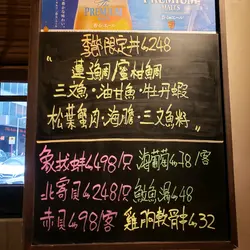 PREMIUM
PREMIUM
MALT'S
限定丼$248
蓮鯛/蜜柑鯛
三文魚·油甘魚·牡丹蝦
松葉蟹肉·海膽·三文魚籽
象拔蚌$498/只 海葡萄$78/客
北寄貝$248/只 魚湯$48
赤貝$98/客 雞胸軟骨$32